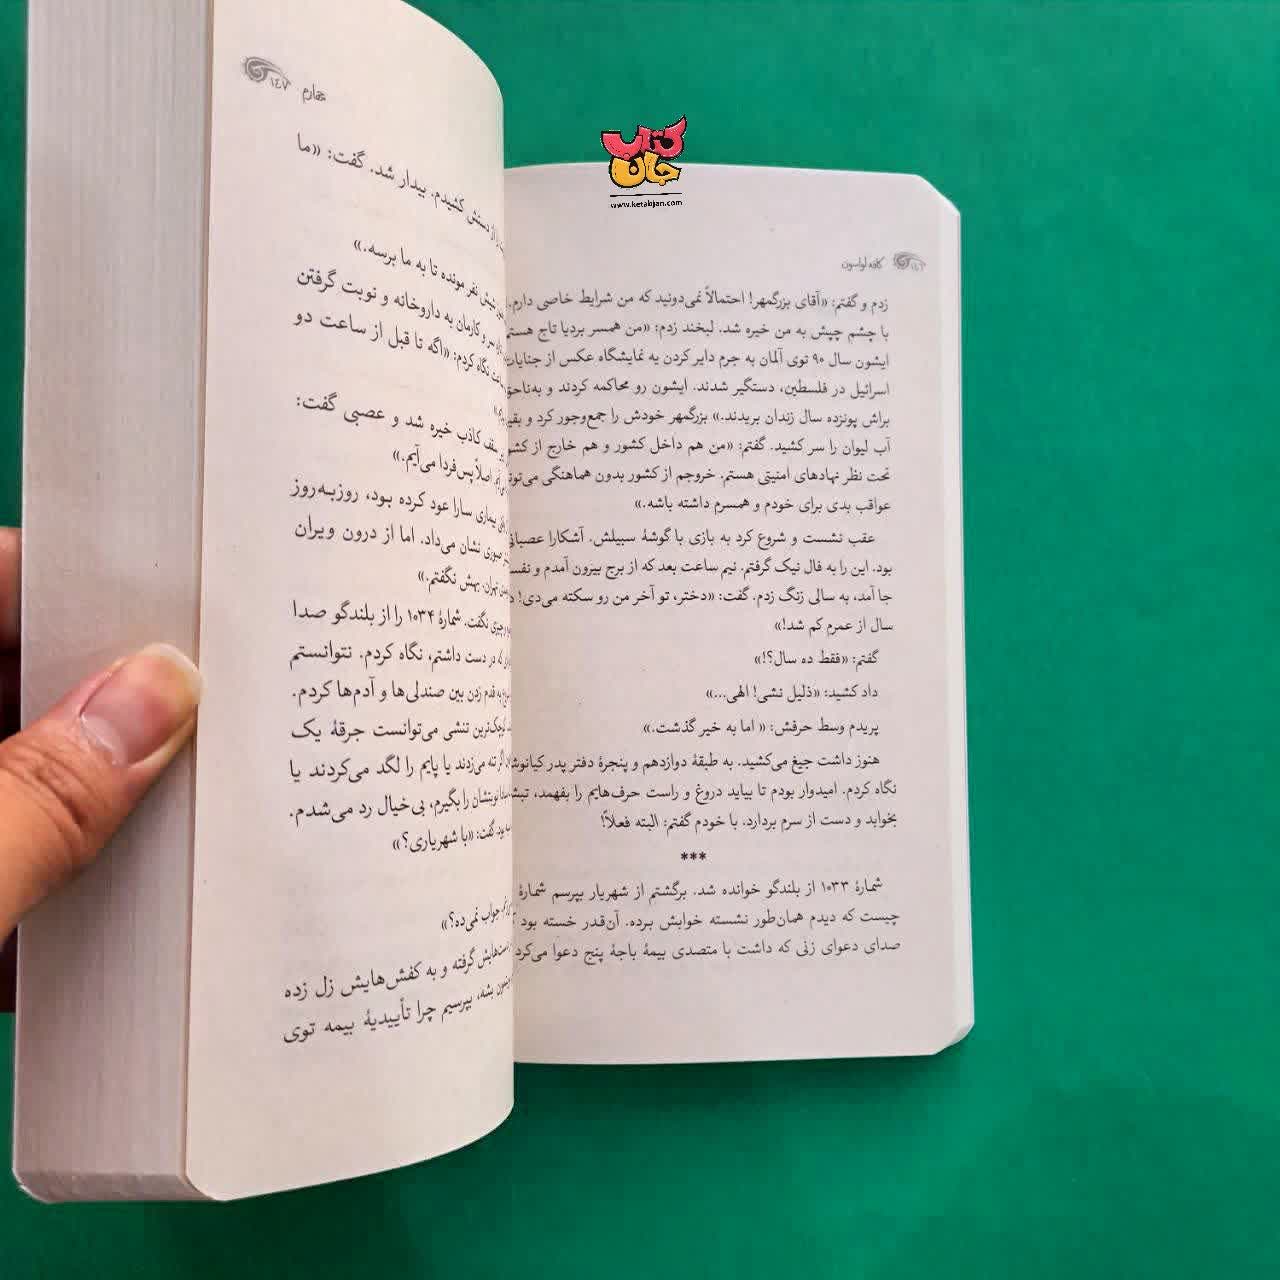 کتاب
جان
www.ketabjan.com
۱۴۶ کافه لواسون
زدم و گفتم: «آقای بزرگمهر! احتمالاً نمی‌دونید که من شرایط خاصی دارم.
با چشم چپش به من خیره شد. لبخند زدم: «من همسر بردیا تاج هستم
ایشون سال ۹۰ توی آلمان به جرم دایر کردن یه نمایشگاه عکس از جنایات
اسرائیل در فلسطین، دستگیر شدند. ایشون رو محاکمه کردند و به‌ناحق
براش پونزده سال زندان بریدند.» بزرگمهر خودش را جمع‌وجور کرد و
آب لیوان را سر کشید. گفتم: «من هم داخل کشور و هم خارج از
تحت نظر نهادهای امنیتی هستم. خروجم از کشور بدون هماهنگی
عواقب بدی برای خودم و همسرم داشته باشه.»
عقب نشست و شروع کرد به بازی با گوشهٔ سبیلش. آشکارا
بود. این را به فال نیک گرفتم. نیم ساعت بعد که از برج بیرون آمدم و
جا آمد، به سالی زنگ زدم. گفت: «دختر، تو آخر من رو سکته می‌دی!
سال از عمرم کم شد!»
گفتم: «فقط ده سال؟!»
داد کشید: «ذلیل نشی! الهی...»
پریدم وسط حرفش: « اما به خیر گذشت.»
هنوز داشت جیغ می‌کشید. به طبقهٔ دوازدهم و پنجرهٔ دفتر پدر
نگاه کردم. امیدوار بودم تا بیاید دروغ و راست حرف‌هایم را بفهمد، تبش
بخوابد و دست از سرم بردارد. با خودم گفتم: البته فعلاً!
***
شمارهٔ ۱۰۳۳ از بلندگو خوانده شد. برگشتم از شهریار بپرسم شمارهٔ
چیست که دیدم همان‌طور نشسته خوابش برده. آن‌قدر خسته بود
صدای دعوای زنی که داشت با متصدی بیمهٔ باجهٔ پنج دعوا می‌کرد
چهارم ۱۴۷
را از دستش کشیدم. بیدار شد. گفت: «ما
شیش نفر مونده تا به ما برسه.»
و کارمان به داروخانه و نوبت گرفتن
نگاه کردم: «اگه تا قبل از ساعت دو
سقف کاذب خیره شد و عصبی گفت:
اصلاً پس‌فردا می‌آیم.»
بیماری سارا عود کرده بود، روزبه‌روز
صبوری نشان می‌داد. اما از درون ویران
تهران. بهش نگفتم.»
چیزی نگفت. شمارهٔ ۱۰۳۴ را از بلندگو صدا
که در دست داشتم، نگاه کردم. نتوانستم
به قدم زدن بین صندلی‌ها و آدم‌ها کردم.
کوچک‌ترین تنشی می‌توانست جرقهٔ یک
تنه می‌زدند یا پایم را لگد می‌کردند یا
نوبتشان را بگیرم، بی‌خیال رد می‌شدم.
گفت: «با شهریاری؟»
جواب نمی‌ده؟»
گرفته و به کفش‌هایش زل زده
بشه، بپرسیم چرا تأییدیهٔ بیمه توی